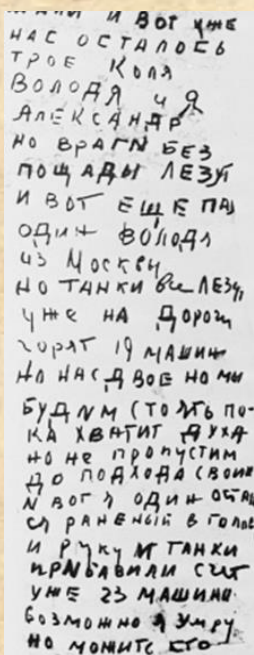 И ВОТ УЖЕ
НАС ОСТАЛОСЬ
ТРОЕ КОЛЯ
ВОЛОДЯ И Я
АЛЕКСАНДР
НО ВРАГИ БЕЗ
ПОЩАДЫ ЛЕЗУТ
И ВОТ ЕЩЕ ПАЛ
ОДИН ВОЛОДЯ
ИЗ МОСКВЫ
НО ТАНКИ все ЛЕЗУТ
УЖЕ НА ДОРОГИ
ГОРЯТ 19 МАШИН
НО НАС ДВОЕ НО МЫ
БУДИМ СТОЯТЬ ПО-
КА ХВАТИТ ДУХА
НО НЕ ПРОПУСТИМ
ДО ПОДХОДА СВОИХ
И ВОТ Я ОДИН ОСТАЛ
СЯ РАНЕНЫЙ В ГОЛОВ
И РУКУ И ТАНКИ
ПРИБАВИЛИ СЧЕТ
УЖЕ 23 МАШИНЫ
ВОЗМОЖНО Я УМРУ
НО МОЖИТЕ КТО